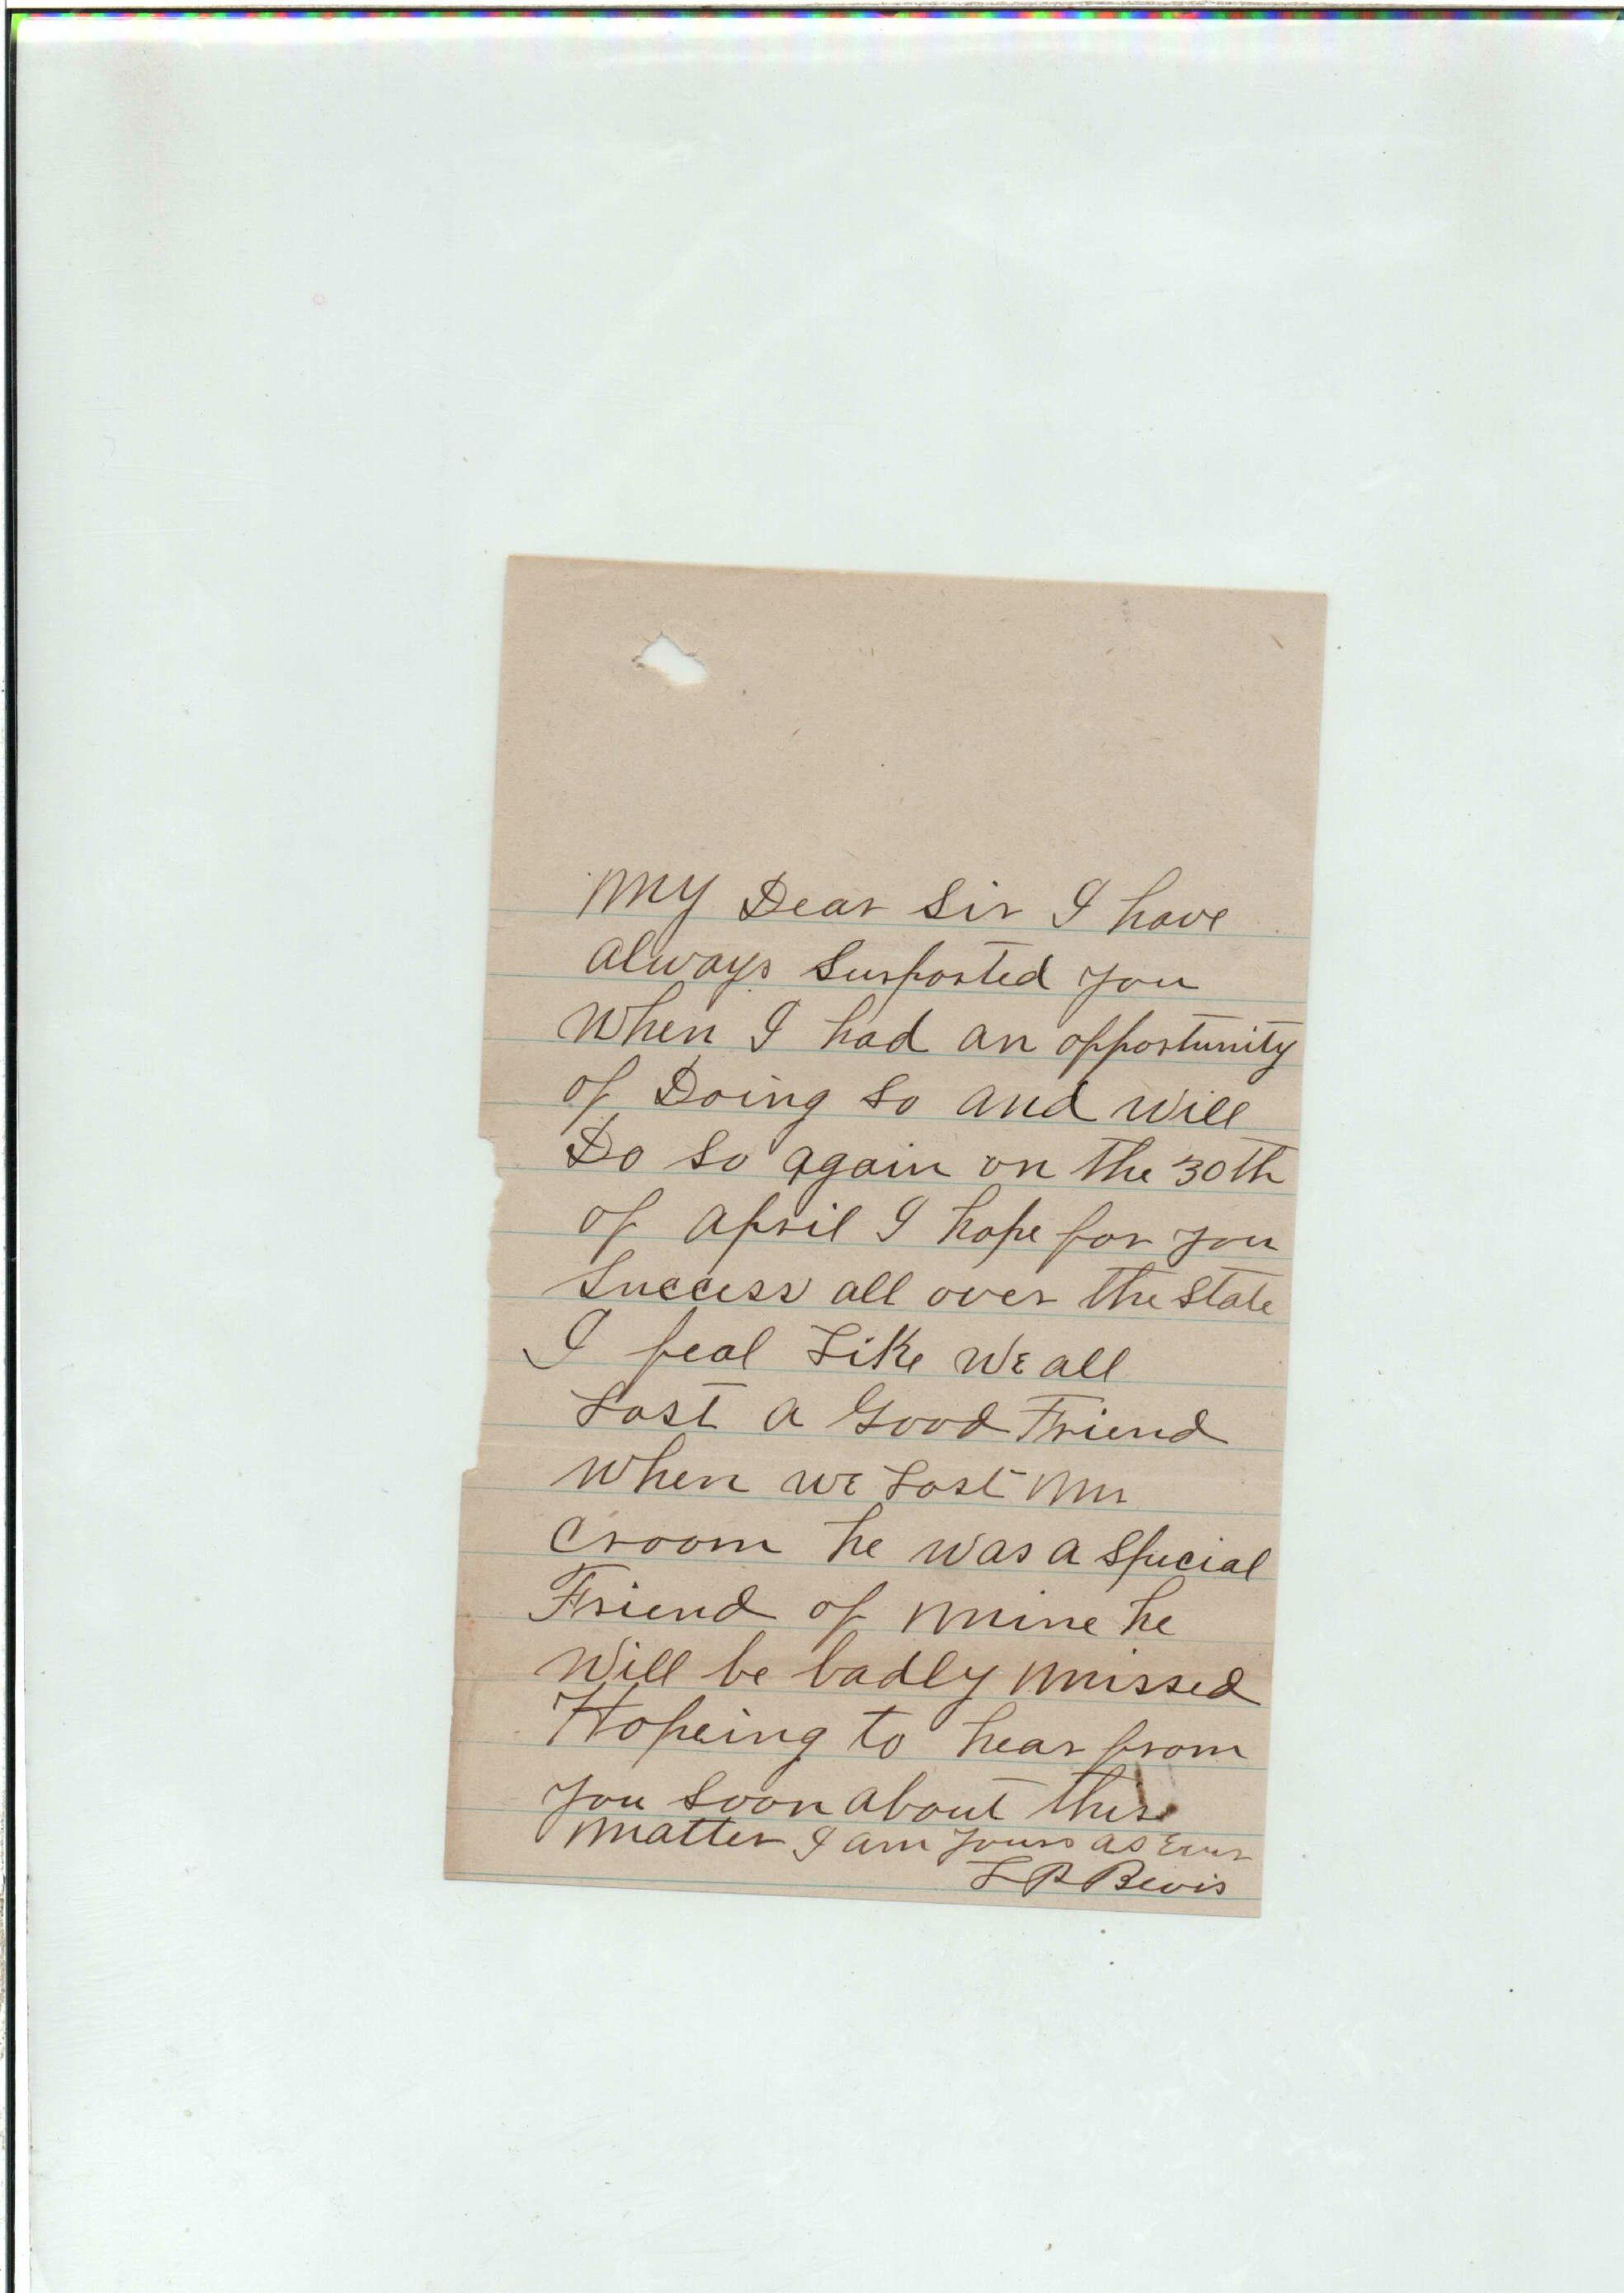 MY Dear Sir I have
always Surported you
When I had an opportunity
of Doing So and Will
Do So again on the 30th
of april I hope for you
Success all over the State
I feal Like WE all
Lost a Good Friend
When WE Lost Mr
Croom he was a Special
Friend of Mine he
Will be badly Missed
Hopeing to hear from
you Soon about this
Matter I am yours as Ever
L B Bevis